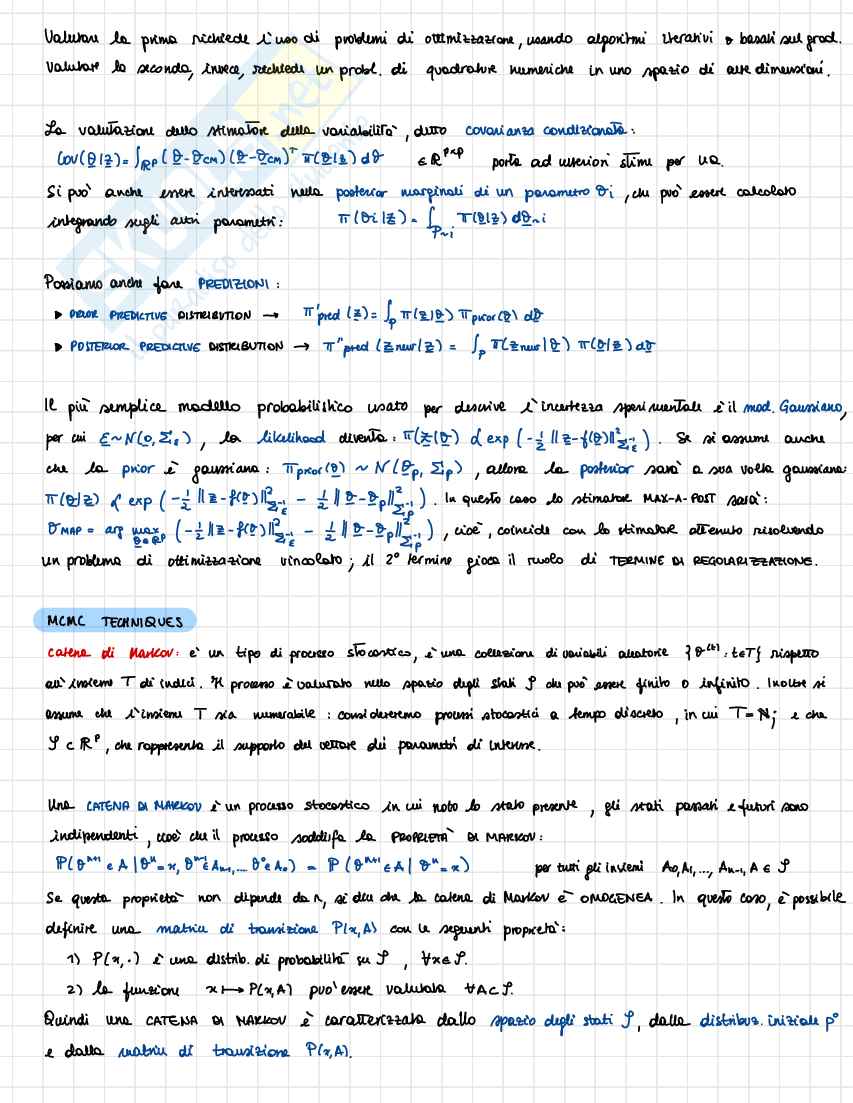 Valutare la prima richiede l'uso di problemi di ottimizzazione, usando algoritmi iterativi o basati sul grad.
Valutare la seconda, invece, richiede un probl. di quadrature numeriche in uno spazio di alte dimensioni.
La valutazione dello stimatore della variabilità, detto covarianza condizionata:
Cov(θ|z) = ∫ℝᵖ (θ-θcm)(θ-θcm)ᵀ π(θ|z) dθ ∈ ℝᵖˣᵖ porta ad ulteriori stime per UQ.
Si può anche essere interessati nella posterior marginali di un parametro θi, che può essere calcolato
integrando sugli altri parametri: π(θi|z) = ∫P~i π(θ|z) dθ~i
Possiamo anche fare PREDIZIONI:
▸ PRIOR PREDICTIVE DISTRIBUTION → π'pred (z) = ∫p π(z|θ) πprior(θ) dθ
▸ POSTERIOR PREDICTIVE DISTRIBUTION → π"pred (znew|z) = ∫p π(znew|θ) π(θ|z) dθ
Il più semplice modello probabilistico usato per descrive l'incertezza sperimentale è il mod. Gaussiano,
per cui ε~N(0, Σε), la likelihood diventa: π(z|θ) ∝ exp (-½ ‖z-f(θ)‖²Σε⁻¹). Se si assume anche
che la prior è gaussiana: πprior(θ) ~ N(θp, Σp), allora la posterior sarà a sua volta gaussiana:
π(θ|z) ∝ exp (-½ ‖z-f(θ)‖²Σε⁻¹ - ½ ‖θ-θp‖²Σp⁻¹). In questo caso lo stimatore MAX-A-POST sarà:
θMAP = arg max θ∈ℝᵖ (-½ ‖z-f(θ)‖²Σε⁻¹ - ½ ‖θ-θp‖²Σp⁻¹), cioè, coincide con lo stimatore ottenuto risolvendo
un problema di ottimizzazione vincolato; il 2° termine gioca il ruolo di TERMINE DI REGOLARIZZAZIONE.
MCMC TECHNIQUES
Catena di Markov: è un tipo di processo stocastico, è una collezione di variabili aleatorie {θ⁽ᵗ⁾: t∈T} rispetto
all'insieme T di indici. Il processo è valutato nello spazio degli stati 𝒮 che può essere finito o infinito. Inoltre si
assume che l'insieme T sia numerabile: considereremo processi stocastici a tempo discreto, in cui T=ℕ; e che
𝒮 ⊂ ℝᵖ, che rappresenta il supporto del vettore dei parametri di interesse.
Una CATENA DI MARKOV è un processo stocastico in cui noto lo stato presente, gli stati passati e futuri sono
indipendenti, cioè che il processo soddisfa la PROPRIETÀ DI MARKOV:
ℙ(θⁿ⁺¹ ∈ A | θⁿ = x, θⁿ⁻¹ ∈ An-1, ... θ⁰ ∈ A0) = ℙ (θⁿ⁺¹ ∈ A | θⁿ = x) per tutti gli insiemi A0, A1, ..., An-1, A ∈ 𝒮
Se questa proprietà non dipende da n, si dice che la catena di Markov è OMOGENEA. In questo caso, è possibile
definire una matrice di transizione P(x,A) con le seguenti proprietà:
1) P(x,·) è una distrib. di probabilità su 𝒮, ∀x∈𝒮.
2) la funzione x ↦ P(x,A) può essere valutata ∀A⊂𝒮.
Quindi una CATENA DI MARKOV è caratterizzata dallo spazio degli stati 𝒮, dalla distribuz. iniziale p⁰
e dalla matrice di transizione P(x,A).